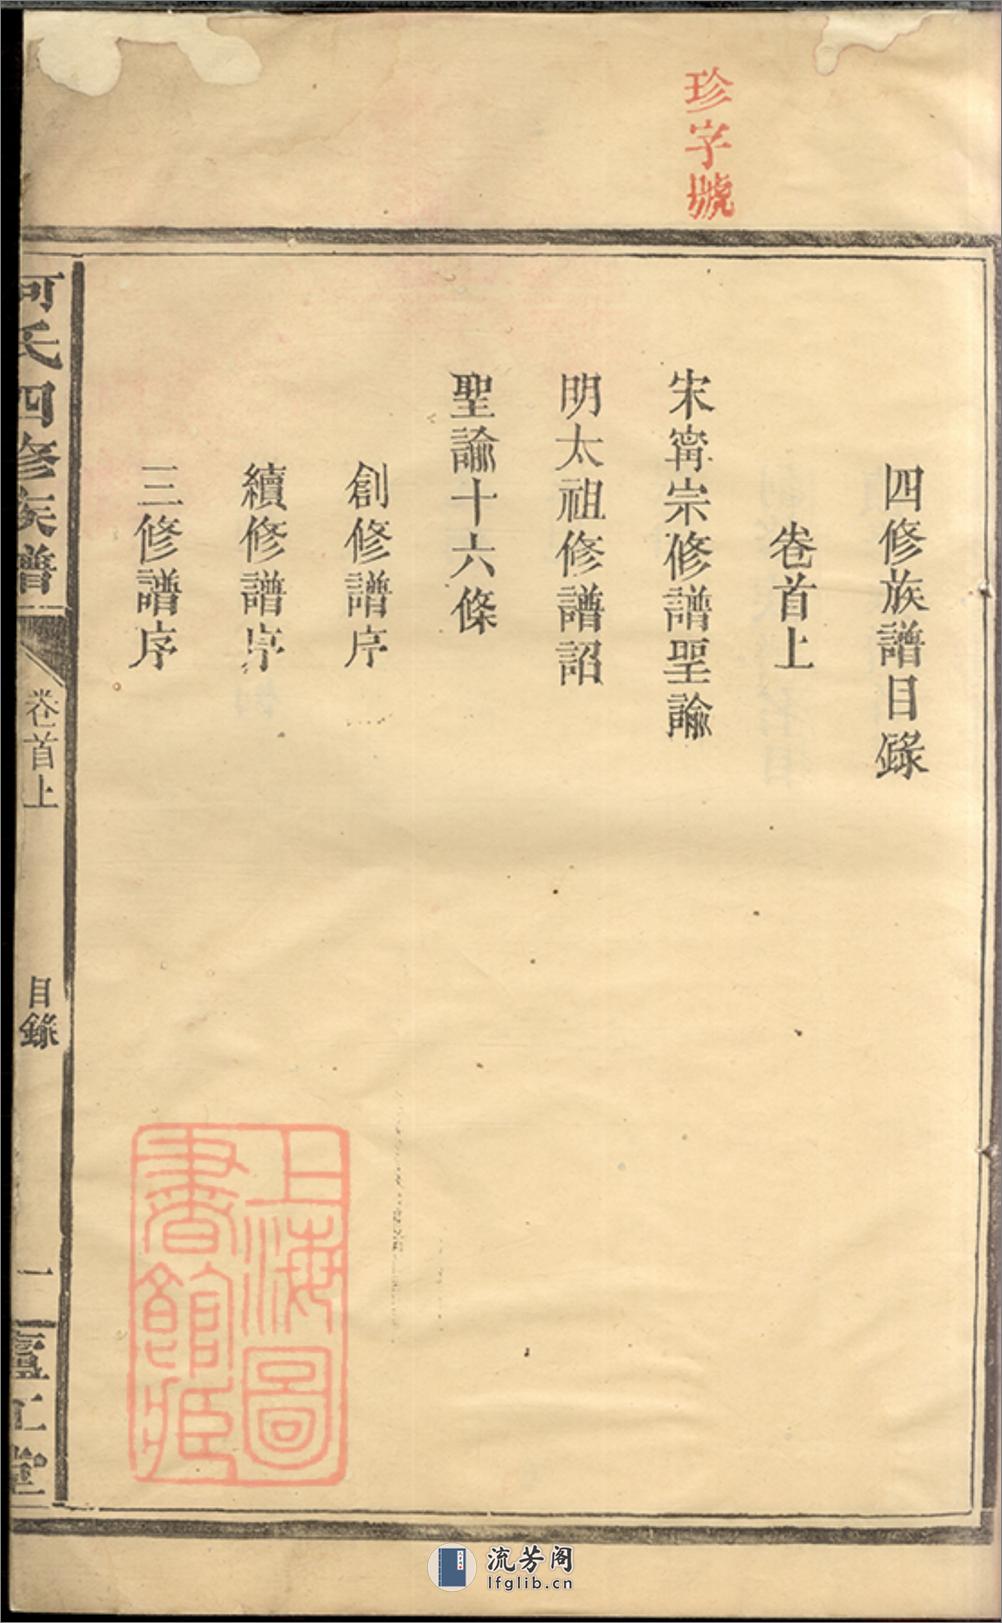 珍字號
四修族譜目錄
卷首上
宋甯宗修譜聖諭
明太祖修譜詔
聖諭十六條
創修譜序
續修譜序
三修譜序
何氏四修族譜
卷首上
目錄
一
廬江堂
上海圖
書館藏
流芳阁
lfglib.cn